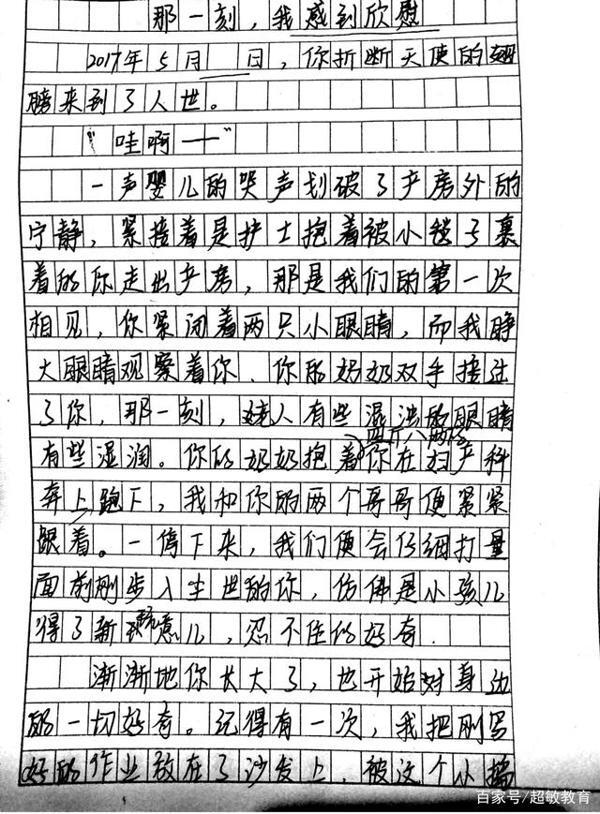 那一刻，我感到欣慰
2017年5月 日，你折断天使的翅
膀来到了人世。
“哇啊一”
一声婴儿的哭声划破了产房外的
宁静，紧接着是护士抱着被小毯子裹
着的你走出产房，那是我们的第一次
相见，你紧闭着两只小眼睛，而我睁
大眼睛观察着你．你的奶奶双手接过
了你，那一刻，老人有些混浊的眼睛
四斤八两的
有些湿润。你的奶奶抱着你在妇产科
奔上跑下，我和你的两个哥哥便紧紧
跟着。一停下来，我们便会仔细打量
面前刚步入尘世的你，仿佛是小孩儿
得了新玩意儿，忍不住的好奇．
渐渐地你长大了，也开始对身边
的一切好奇。记得有一次，我把刚写
好的作业放在了沙发上．被这个小捣
百家号/超敏教育